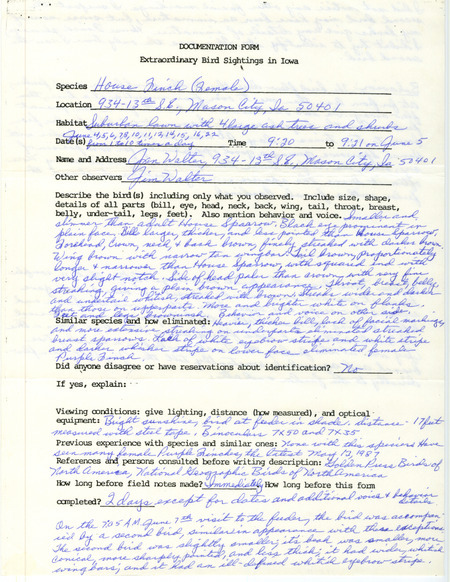 DOCUMENTATION FORM
Extraordinary Bird Sightings in Iowa
Species House Finch (Female)
Location 934-13th SE, Mason City, Ia 50401
Habitat Suburban lawn with 4 large ash trees and shrubs
June 4, 5, 6, 7, 8, 10, 11, 12, 14, 15, 16, 22
Date(s) from 1 to 10 times a day Time 9:20 to 9:21 on June 5
Name and Address Jan Walter, 934-13th SE, Mason City, Ia 50401
Other observers Jim Walter
Describe the bird(s) including only what you observed. Include size, shape,
details of all parts (bill, eye, head, neck, back, wing, tail, throat, breast,
belly, under-tail, legs, feet). Also mention behavior and voice. Smaller and
slimmer than adult House Sparrow. Black eye prominent in
plain face. Bill larger, thicker, and less pointed than House Sparrow.
Forehead, crown, neck & back brown, finely streaked with darker brown.
Wing brown with narrow tan wingbars. Tail brown, proportionately
longer & narrower than House Sparrow, with squared end with
very slight notch. Side of head paler than crown with very fine
streaking, giving a plain brown appearance. Throat, breast, belly,
and undertail whitish, streaked with brown. Streaks wider and darker
than those on upperparts. More and brighter white on flanks.
Legs and feet brownish. Behavior and voice on other side.
Similar species and how eliminated: Heavier, thicker bill, lack of facial markings,
and more extensive streaking on underparts eliminated streaked
breast sparrows. Lack of white eyebrow stripe and white stripe
and darker whisker stripe on lower face eliminated female
Purple Finch.
Did anyone disagree or have reservations about identification? No
If yes, explain:
Viewing conditions: give lighting, distance (how measured), and optical
equipment: Bright sunshine, bird at feeder in shade. distance - 17 feet
measured with steel tape. Binoculars 7X50 and 7X35
Previous experience with species and similar ones: None with this species. Have
seen many female Purple Finches, the latest May 13, 1987
References and persons consulted before writing description: Golden Press Birds of
North America, National Geographic Birds of North America
How long before field notes made? Immediately How long before this form
completed? 2 days except for dates and additional voice & behavior details
On the 7:05 A.M. June 7th visit to the feeder, the bird was accompan-
ied by a second bird, similar in appearance with these exceptions.
The second bird was slightly smaller; its beak was smaller, more
conical, more sharply pointed, and less thick; it had wider, whitish
wing bars; and it had an ill-defined whitish eyebrow stripe.